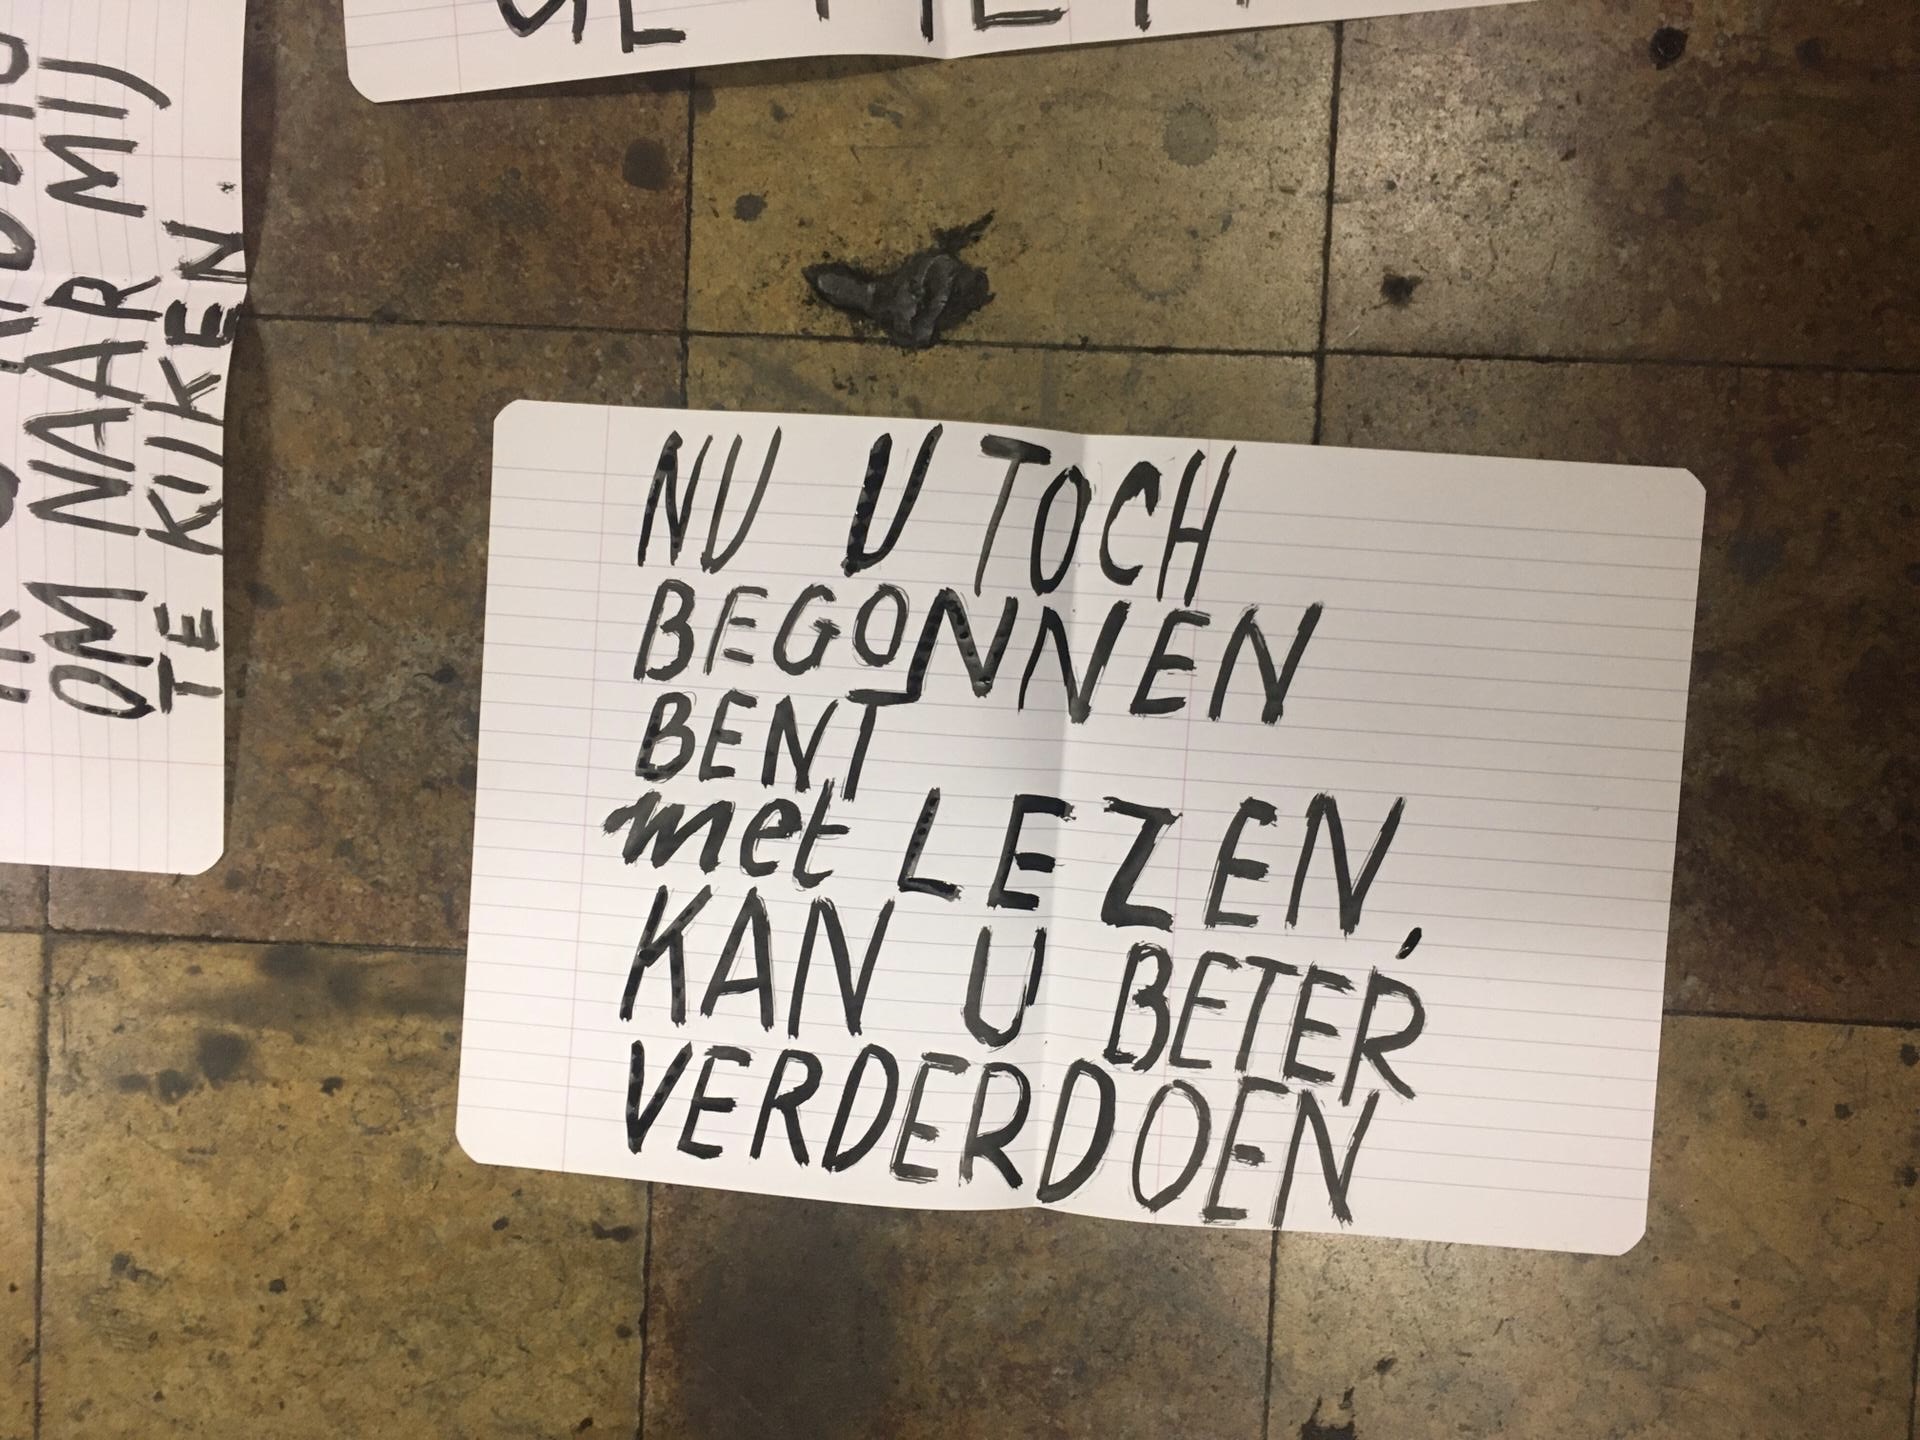 NU U TOCH
BEGONNEN
BENT
met LEZEN,
KAN U BETER
VERDERDOEN
OM NAAR MIJ
TE KIJKEN.